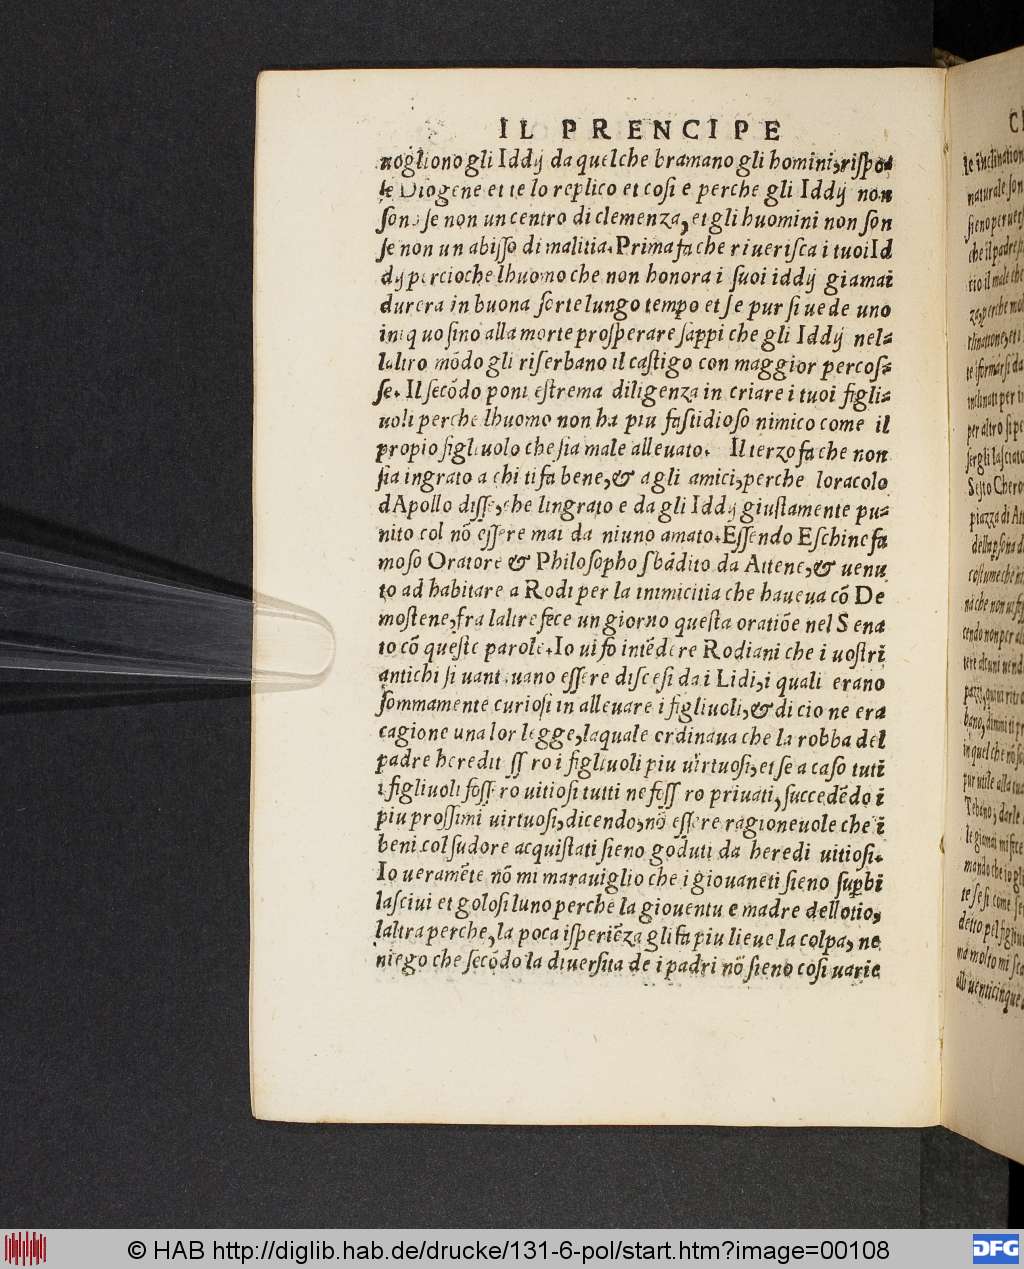 IL PRENCIPE
uogliono gli Iddij da quel che bramano gli homini, rispo-
se Diogene et te lo replico et cosi e perche gli Iddij non
sono se non un centro di clemenza, et gli huomini non son
se non un abisso di malitia. Prima fa che riuerisca i tuoi Id
dij percioche lhuomo che non honora i suoi iddij giamai
durera in buona sorte lungo tempo et se pur si uede uno
iniquo sino alla morte prosperare sappi che gli Iddij nel=
laltro mōdo gli riserbano il castigo con maggior percos=
se. Il secōdo poni estrema diligenza in criare i tuoi figli=
uoli perche lhuomo non ha piu fastidioso nimico come il
propio figliuolo che sia male alleuato. Il terzo fa che non
sia ingrato a chi ti fa bene, & agli amici, perche loracolo
dApollo disse, che lingrato e da gli Iddij giustamente pu=
nito col nō essere mai da niuno amato. Essendo Eschine fa
moso Oratore & Philosopho sbādito da Attene, & uenu
to ad habitare a Rodi per la inimicitia che haueua cō De
mostene, fra laltre fece un giorno questa oratiōe nel Sena
to cō queste parole. Io ui fo intēdere Rodiani che i uostri
antichi si uantauano essere discesi da i Lidi, i quali erano
sommamente curiosi in alleuare i figliuoli, & di cio ne era
cagione una lor legge, laquale ordinaua che la robba del
padre hereditassero i figliuoli piu uirtuosi, et se a caso tuti
i figliuoli fossero uitiosi tutti ne fossero priuati, succedēdo i
piu prossimi uirtuosi, dicendo, nō essere ragioneuole che i
beni col sudore acquistati sieno goduti da heredi uitiosi.
Io ueramēte nō mi marauiglio che i giouaneti sieno supbi
lasciui et golosi luno perche la giouentu e madre dellotio,
laltra perche, la poca isperiēza gli fa piu lieue la colpa, ne
niego che secōdo la diuersita de i padri nō sieno cosi uarie
le inclination
naturale son
che il padre
tio il male che
inclinati per
per altro si pe
Sesto Chero
piazza di At
costume che
cendo non per al
pur utile alla tua
Tebano, darle
le giamai mi fece
mando che io gli
te se si come se
detto pel figliuo
ma molto mi
alli uenticinque
© HAB http://diglib.hab.de/drucke/131-6-pol/start.htm?image=00108
DFG